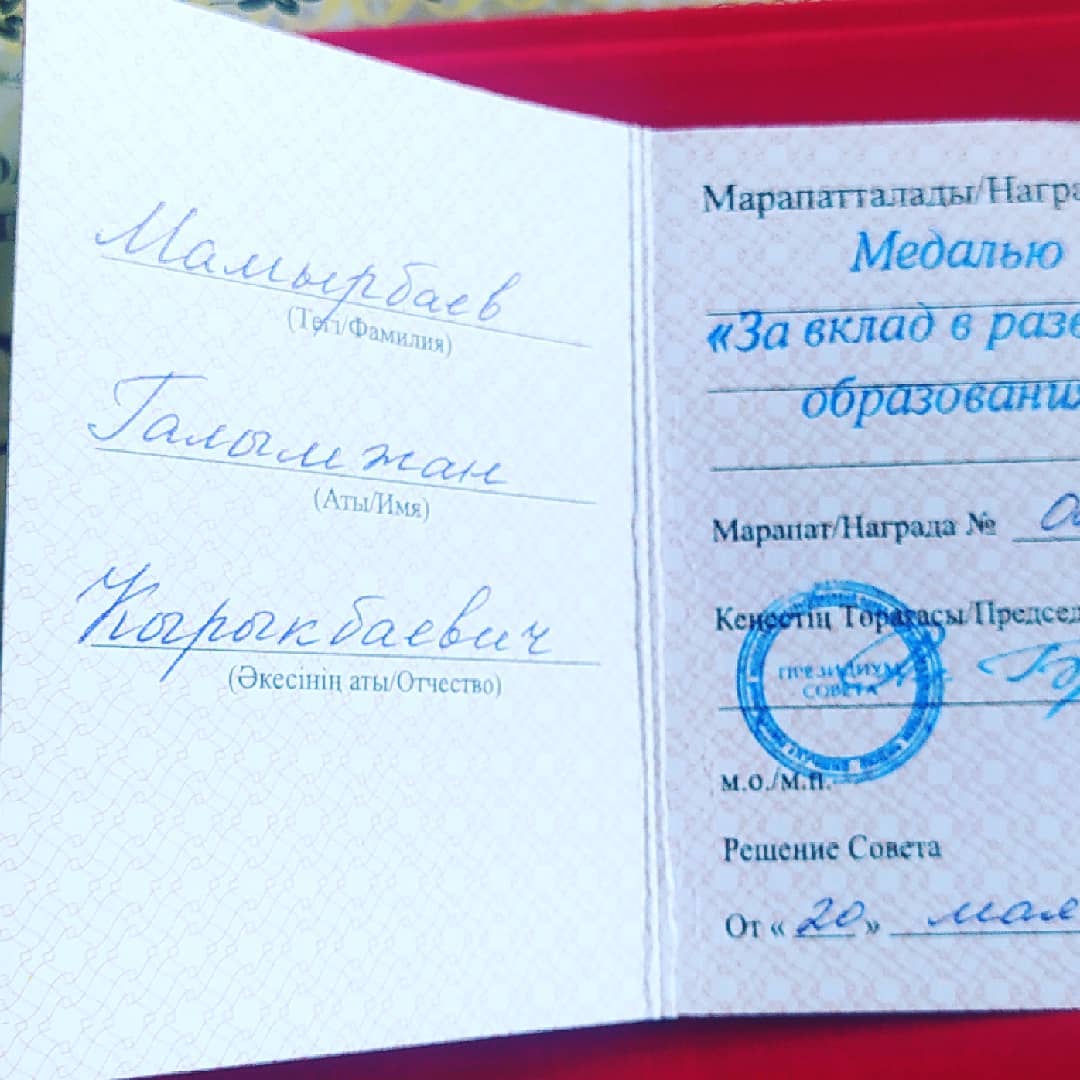 Мамырбаев
(Тегі/Фамилия)
Галымжан
(Аты/Имя)
Кырыкбаевич
(Әкесінің аты/Отчество)
Марапатталады/Награ
Медалью
«За вклад в разв
образовани
Марапат/Награда №
Кеңестің Төрағасы/Председ
ПРЕЗИДИУМ
СОВЕТА
м.о./м.п.
Решение Совета
От « 20 » мая